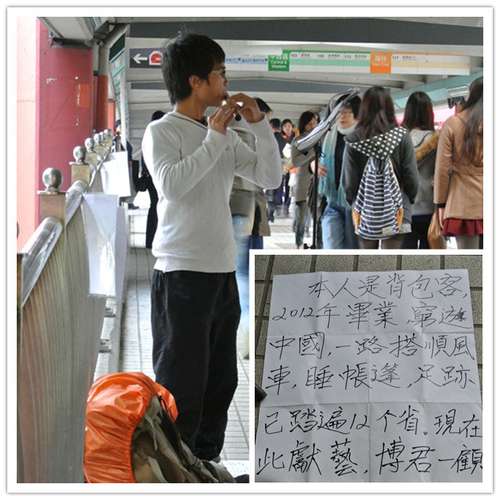 本人是背包客,
2012年畢業,窮遊
中國,一路搭順風
車,睡帳逢,足跡
已踏遍12个省,現在
此獻藝,博君一顧